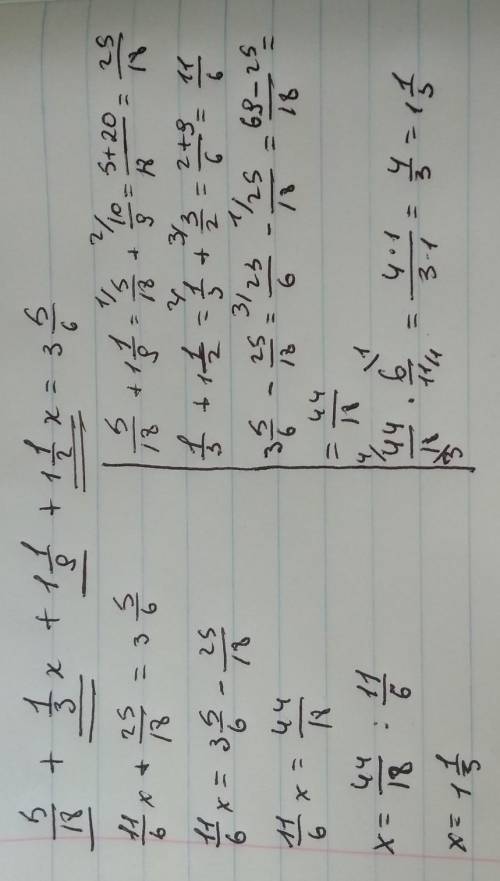 5/18 + 1/3 x + 1 1/9 + 1 1/2 x = 3 5/6
11/6 x + 25/18 = 3 5/6
11/6 x = 3 5/6 - 25/18
11/6 x = 44/18
x = 44/18 : 11/6
x = 1 1/3
5/18 + 1 1/9 = 1/ 5/18 + 2/ 10/9 = 5+20/18 = 25/18
1/3 + 1 1/2 = 2/ 1/3 + 3/ 3/2 = 2+9/6 = 11/6
3 5/6 - 25/18 = 3/ 23/6 - 1/ 25/18 = 69-25/18 =
= 44/18
4/ 44/18 \3 · 6 \1/11/1 = 4·1/3·1 = 4/3 = 1 1/3